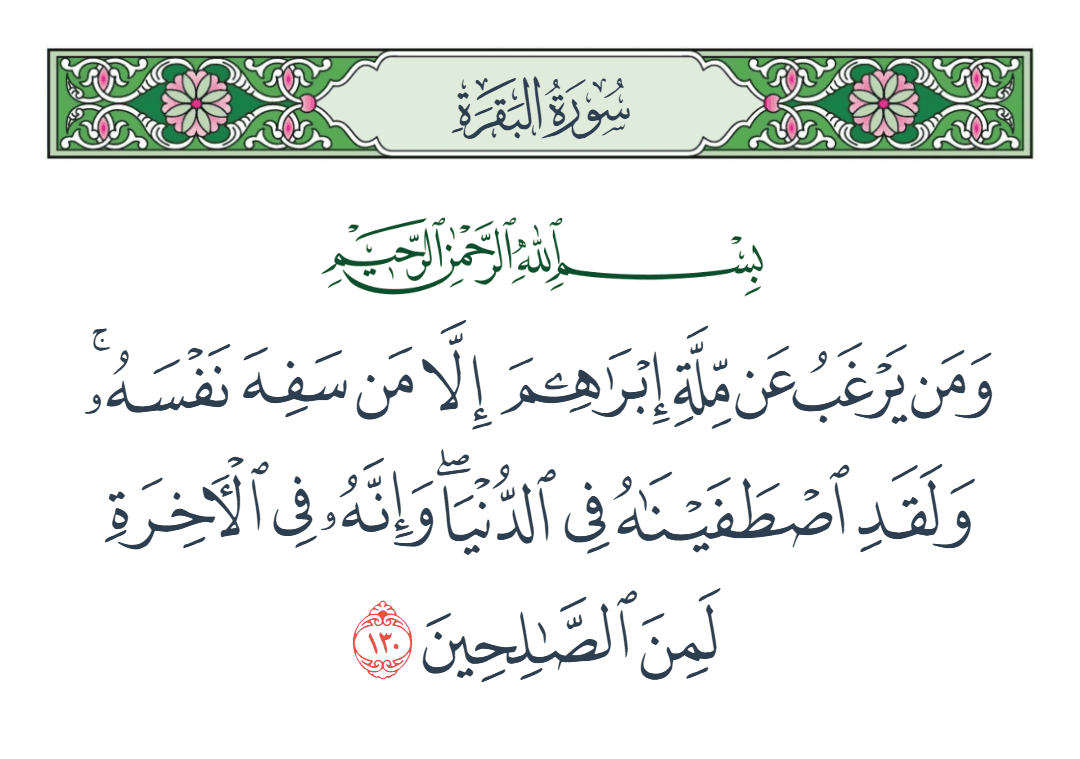 سُورَةُ البَقَرَةِ
بِسْمِ ٱللَّهِ ٱلرَّحْمَٰنِ ٱلرَّحِيمِ
وَمَن يَرْغَبُ عَن مِّلَّةِ إِبْرَٰهِۦمَ إِلَّا مَن سَفِهَ نَفْسَهُۥ ۚ
وَلَقَدِ ٱصْطَفَيْنَٰهُ فِى ٱلدُّنْيَا ۖ وَإِنَّهُۥ فِى ٱلْأَخِرَةِ
لَمِنَ ٱلصَّٰلِحِينَ ١٣٠